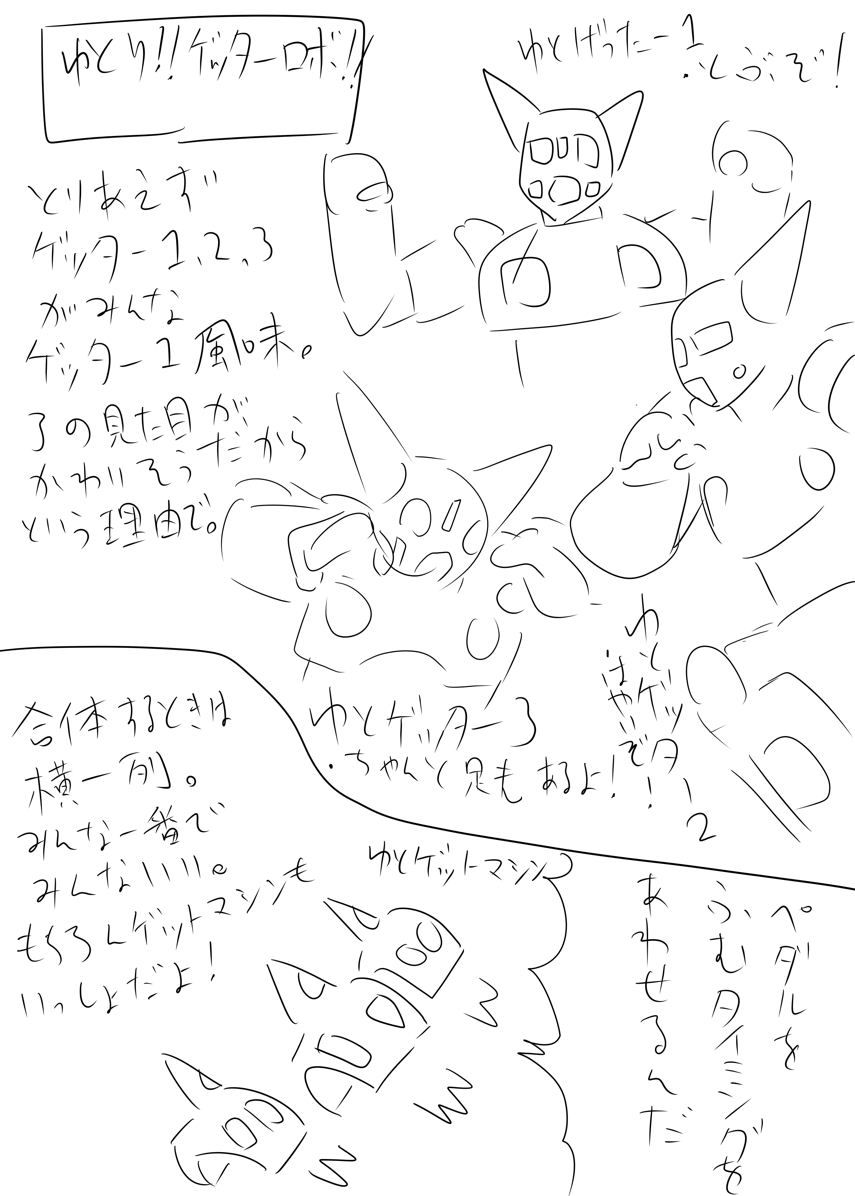 ゆとり!!ゲッターロボ!!
とりあえず
ゲッター1、2、3
がみんな
ゲッター1風味。
3の見た目が
かわいそうだから
という理由で。
ゆとげったー1
・とぶぞ!
ゆとゲッター2
・はやいぞ!
ゆとゲッター3
・ちゃんと足もあるよ!
合体するときは
横一列。
みんな一番で
みんないい。
もちろんゲットマシンも
いっしょだよ!
ゆとゲットマシン
ペダルを
ふむタイミングを
あわせるんだ
W
W
W